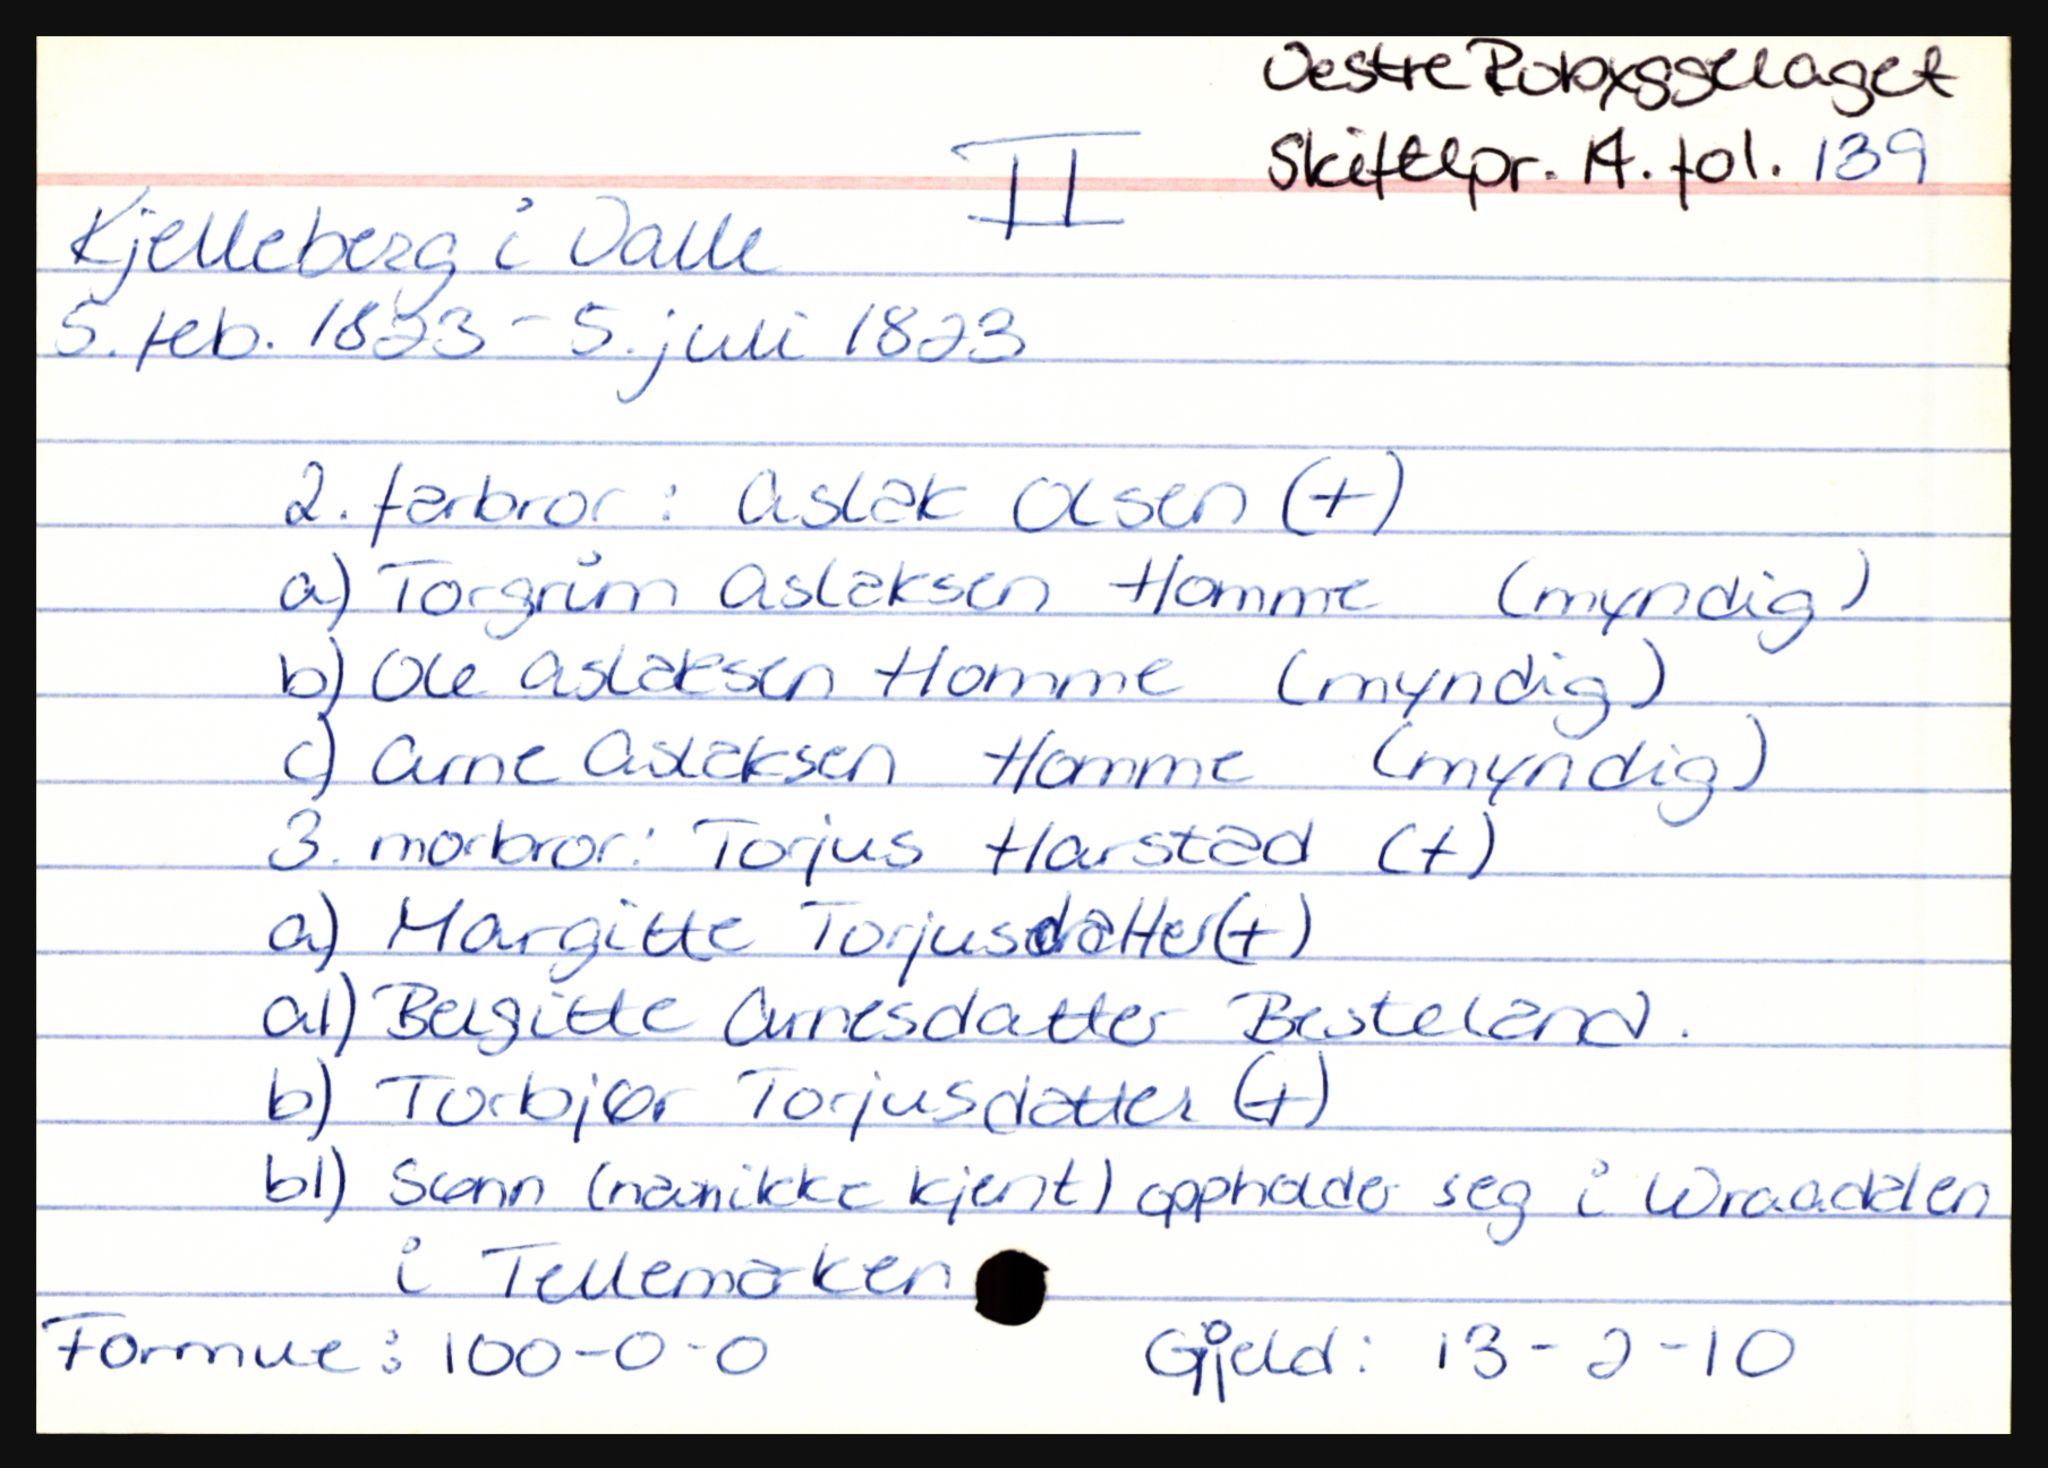 Vestre Robyggelaget
Skiftepr. 14. fol. 139
II
Kjelleberg i Valle
5. feb. 1823 - 5. juli 1823
2. farbror: Aslak Olsen (+)
a) Torgrim Aslaksen Homme (myndig)
b) Ole Aslaksen Homme (myndig)
c) Arne Aslaksen Homme (myndig)
3. morbror: Torjus Harstad (+)
a) Margitte Torjusdatter (+)
a1) Bergitte Arnesdatter Besteland.
b) Torbjør Torjusdatter (+)
b1) Sønn (navn ikke kjent) oppholder seg i Wraadalen
i Tellemarken
Formue: 100-0-0 Gjeld: 13-2-10